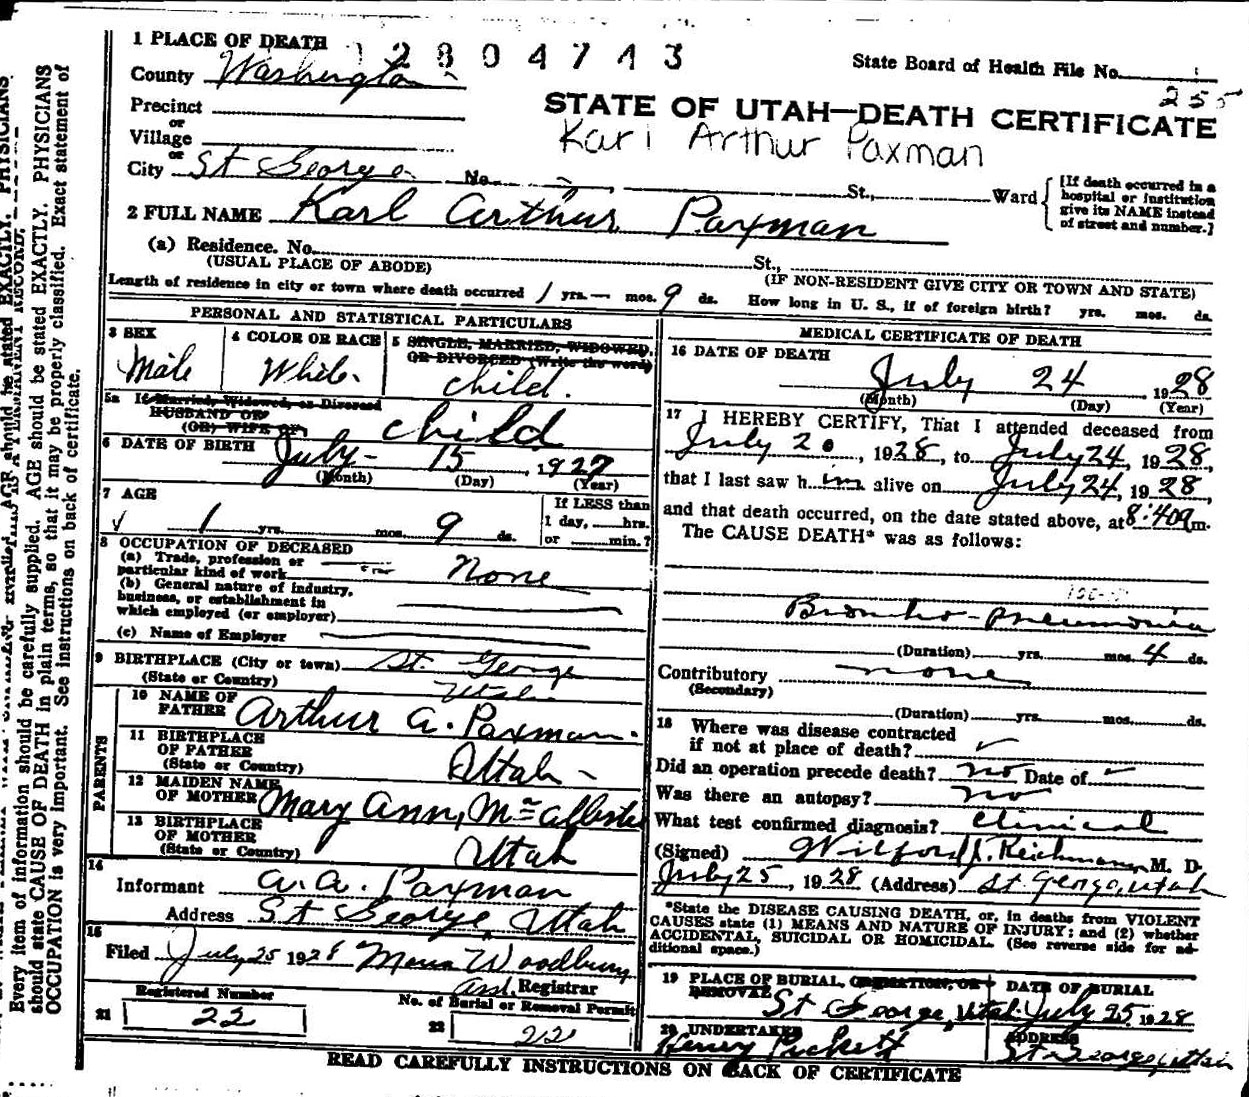 1 PLACE OF DEATH
12804743
State Board of Health File No.
255
County Washington
Precinct
or
Village
or
City St George No. St., Ward
STATE OF UTAH—DEATH CERTIFICATE
Karl Arthur Paxman
[If death occurred in a
hospital or institution
give its NAME instead
of street and number.]
2 FULL NAME Karl Arthur Paxman
(a) Residence. No. St.,
(USUAL PLACE OF ABODE)
(IF NON-RESIDENT GIVE CITY OR TOWN AND STATE)
Length of residence in city or town where death occurred 1 yrs. — mos. 9 ds. How long in U. S., if of foreign birth? yrs. mos. ds.
PERSONAL AND STATISTICAL PARTICULARS
3 SEX
Male
4 COLOR OR RACE
White
5 SINGLE, MARRIED, WIDOWED,
OR DIVORCED (Write the word)
child.
5a If Married, Widowed, or Divorced
HUSBAND OF
(OR) WIFE OF
child
6 DATE OF BIRTH July - 15, 1927
(Month) (Day) (Year)
7 AGE
1 yrs. mos. 9 ds.
If LESS than
1 day, hrs.
or min.?
8 OCCUPATION OF DECEASED
(a) Trade, profession or
particular kind of work None
(b) General nature of industry,
business, or establishment in
which employed (or employer)
(c) Name of Employer
9 BIRTHPLACE (City or town) St. George
(State or Country) Utah
PARENTS
10 NAME OF
FATHER Arthur A. Paxman.
11 BIRTHPLACE
OF FATHER
(State or Country) Utah -
12 MAIDEN NAME
OF MOTHER Mary Ann, McAllister
13 BIRTHPLACE
OF MOTHER
(State or Country) Utah
14
Informant A. A. Paxman
Address St George, Utah
15
Filed July 25 1928 Woodbury
Asst. Registrar
Registered Number
21 22
No. of Burial or Removal Permit
22 22
MEDICAL CERTIFICATE OF DEATH
16 DATE OF DEATH
July 24 1928
(Month) (Day) (Year)
17 I HEREBY CERTIFY, That I attended deceased from
July 20, 1928, to July 24, 1928,
that I last saw him alive on July 24, 1928,
and that death occurred, on the date stated above, at 8:40a m.
The CAUSE DEATH* was as follows:
Broncho-pneumonia
(Duration) yrs. mos. 4 ds.
Contributory none
(Secondary)
(Duration) yrs. mos. ds.
18 Where was disease contracted
if not at place of death?
Did an operation precede death? no Date of
Was there an autopsy? no
What test confirmed diagnosis? Clinical
(Signed) Wilford J. Reichmann, M. D.
July 25, 1928 (Address) St. George, Utah
*State the DISEASE CAUSING DEATH, or, in deaths from VIOLENT
CAUSES state (1) MEANS AND NATURE OF INJURY; and (2) whether
ACCIDENTAL, SUICIDAL OR HOMICIDAL. (See reverse side for ad-
ditional space.)
19 PLACE OF BURIAL, CREMATION, OR
REMOVAL St George, Utah
DATE OF BURIAL
July 25 1928
20 UNDERTAKER
Henry Pickett
ADDRESS
St George, Utah
READ CAREFULLY INSTRUCTIONS ON BACK OF CERTIFICATE
Every item of information should be carefully supplied. AGE should be stated EXACTLY. PHYSICIANS
should state CAUSE OF DEATH in plain terms, so that it may be properly classified. Exact statement of
OCCUPATION is very important. See instructions on back of certificate.